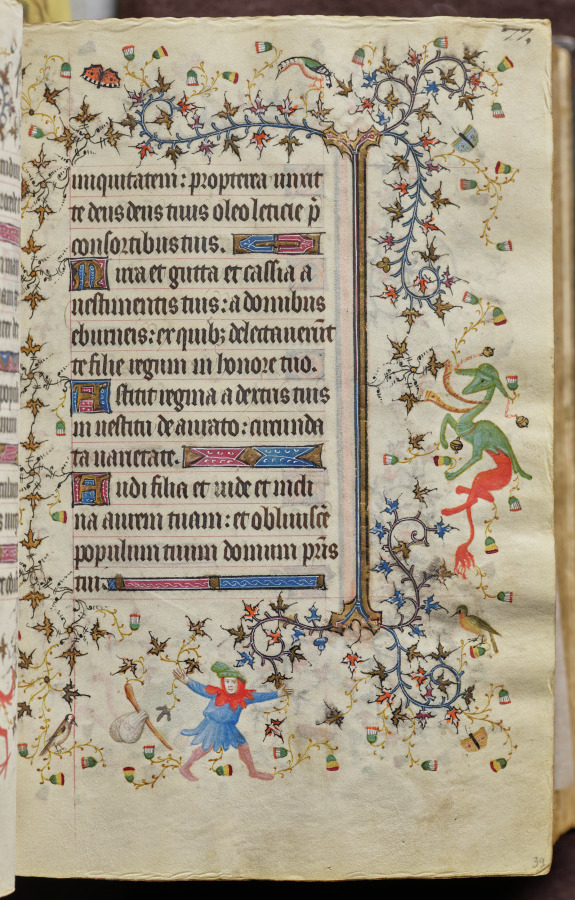 77.
iniquitatem: propterea unxit
te deus deus tuus oleo leticie p̄
consortibus tuis.
Mirra et gutta et cassia a
uestimentis tuis: a domibus
eburneis: ex quibꝫ delectauerūt
te filie regum in honore tuo.
Astitit regina a dextris tuis
in uestitu deaurato: circunda
ta uarietate.
Audi filia et uide et incli
na aurem tuam: et obliuiscē
populum tuum domum pr̄is
tui.
39